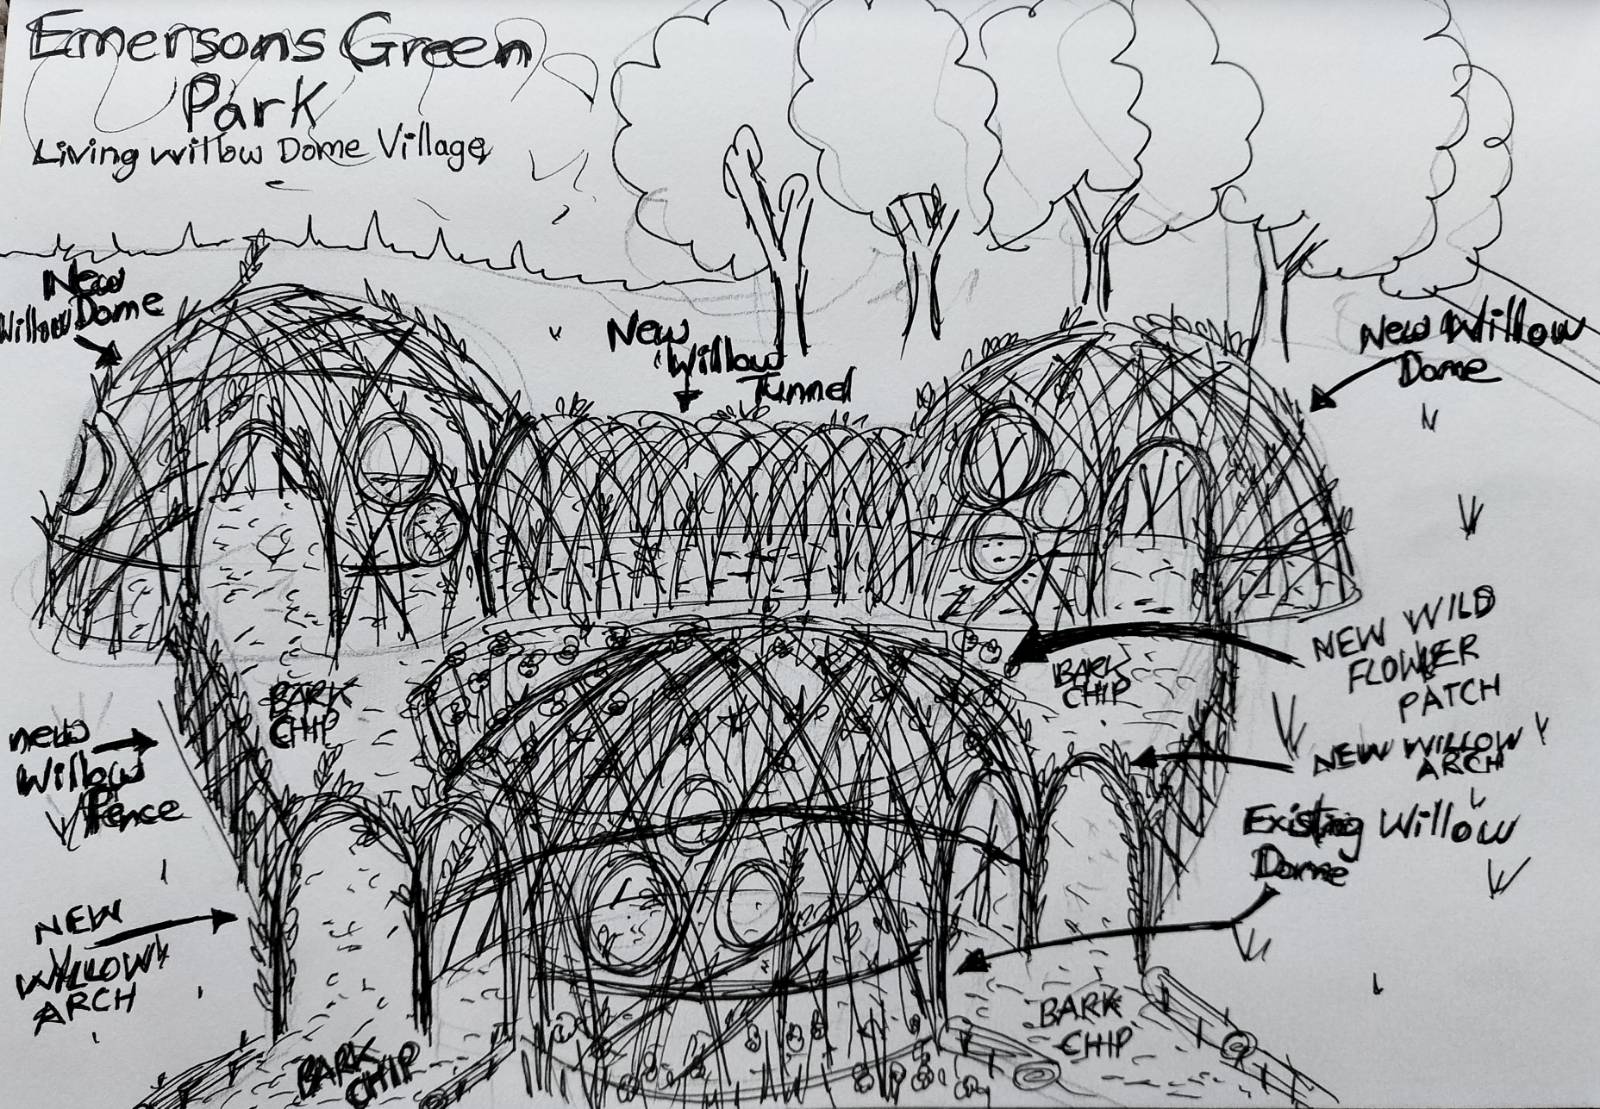 Emersons Green
Park
Living Willow Dome Village
New
Willow Dome
New
Willow
Tunnel
New Willow
Dome
NEW WILD
FLOWER
PATCH
BARK
CHIP
BARK
CHIP
new
Willow
Fence
NEW WILLOW
ARCH
Existing Willow
Dome
NEW
WILLOW
ARCH
BARK
CHIP
BARK
CHIP